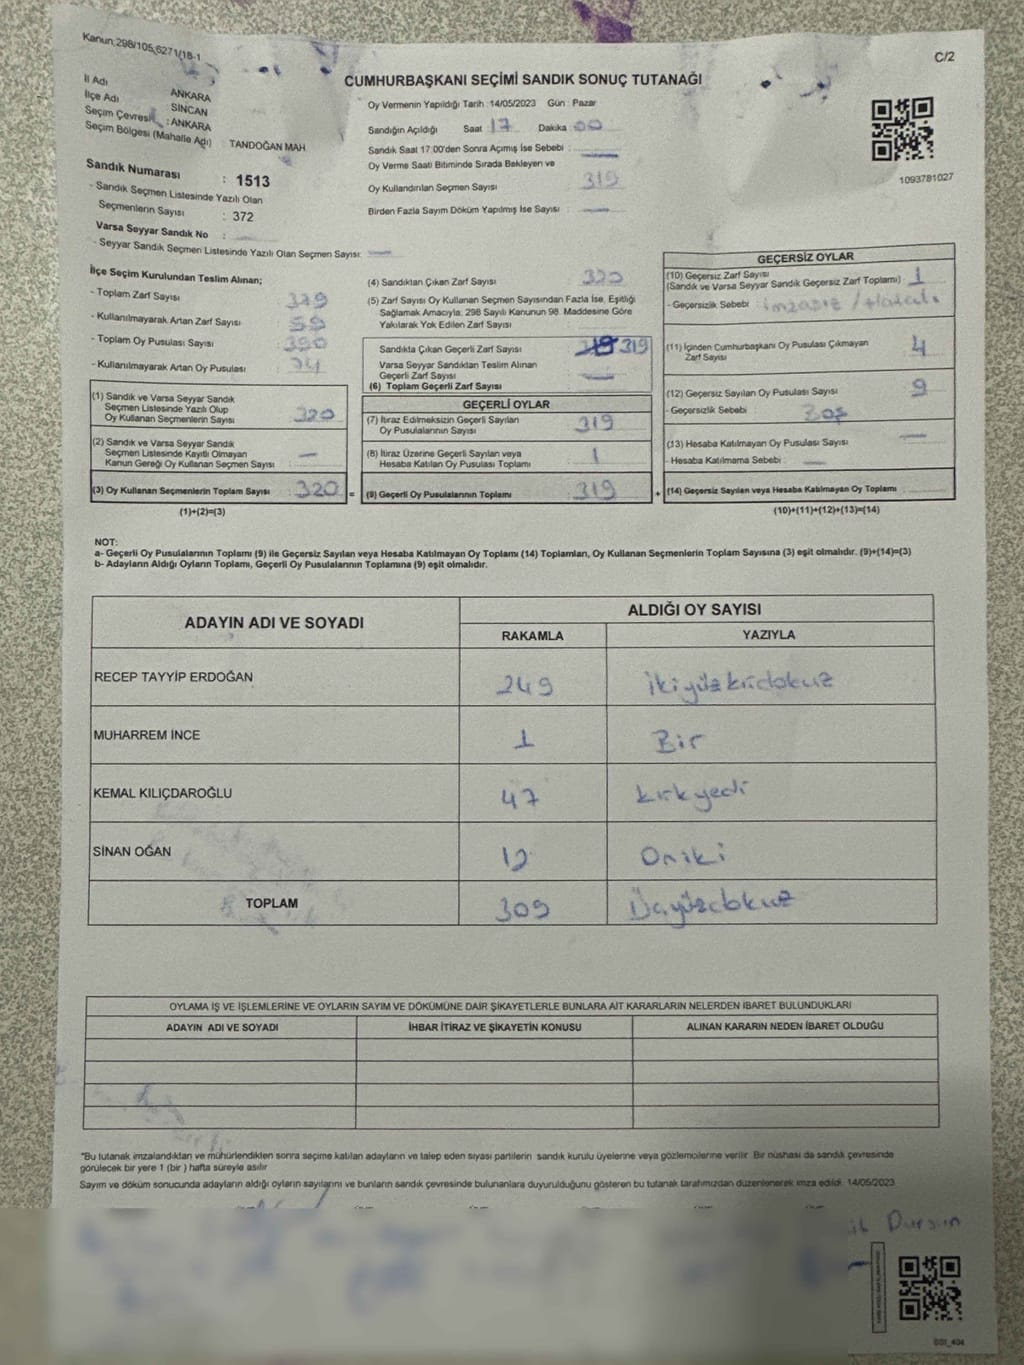 Kanun:298/105,6271/18-1
C/2
CUMHURBAŞKANI SEÇİMİ SANDIK SONUÇ TUTANAĞI
İl Adı ANKARA
İlçe Adı SİNCAN
Seçim Çevresi : ANKARA
Seçim Bölgesi (Mahalle Adı) TANDOĞAN MAH
Sandık Numarası : 1513
- Sandık Seçmen Listesinde Yazılı Olan
Seçmenlerin Sayısı : 372
Varsa Seyyar Sandık No :
- Seyyar Sandık Seçmen Listesinde Yazılı Olan Seçmen Sayısı:
Oy Vermenin Yapıldığı Tarih : 14/05/2023 Gün : Pazar
Sandığın Açıldığı Saat 17 Dakika 00
Sandık Saat 17:00'den Sonra Açımış İse Sebebi :
Oy Verme Saati Bitiminde Sırada Bekleyen ve
Oy Kullandırılan Seçmen Sayısı : 319
Birden Fazla Sayım Döküm Yapılmış İse Sayısı :
1093781027
İlçe Seçim Kurulundan Teslim Alınan;
- Toplam Zarf Sayısı : 379
- Kullanılmayarak Artan Zarf Sayısı : 59
- Toplam Oy Pusulası Sayısı : 390
- Kullanılmayarak Artan Oy Pusulası : 74
(1) Sandık ve Varsa Seyyar Sandık
Seçmen Listesinde Yazılı Olup
Oy Kullanan Seçmenlerin Sayısı : 320
(2) Sandık ve Varsa Seyyar Sandık
Seçmen Listesinde Kayıtlı Olmayan
Kanun Gereği Oy Kullanan Seçmen Sayısı : —
(3) Oy Kullanan Seçmenlerin Toplam Sayısı : 320 =
(1)+(2)=(3)
(4) Sandıktan Çıkan Zarf Sayısı : 320
(5) Zarf Sayısı Oy Kullanan Seçmen Sayısından Fazla İse, Eşitliği
Sağlamak Amacıyla; 298 Sayılı Kanunun 98. Maddesine Göre
Yakılarak Yok Edilen Zarf Sayısı :
Sandıkta Çıkan Geçerli Zarf Sayısı : 319
Varsa Seyyar Sandıktan Teslim Alınan
Geçerli Zarf Sayısı : —
(6) Toplam Geçerli Zarf Sayısı :
GEÇERLİ OYLAR
(7) İtiraz Edilmeksizin Geçerli Sayılan
Oy Pusulalarının Sayısı : 319
(8) İtiraz Üzerine Geçerli Sayılan veya
Hesaba Katılan Oy Pusulası Toplamı : 1
(9) Geçerli Oy Pusulalarının Toplamı : 319 +
GEÇERSİZ OYLAR
(10) Geçersiz Zarf Sayısı
(Sandık ve Varsa Seyyar Sandık Geçersiz Zarf Toplamı) : 1
- Geçersizlik Sebebi : imzasız / Hatalı
(11) İçinden Cumhurbaşkanı Oy Pusulası Çıkmayan
Zarf Sayısı : 4
(12) Geçersiz Sayılan Oy Pusulası Sayısı : 9
- Geçersizlik Sebebi : Boş
(13) Hesaba Katılmayan Oy Pusulası Sayısı : —
- Hesaba Katılmama Sebebi : —
(14) Geçersiz Sayılan veya Hesaba Katılmayan Oy Toplamı :
(10)+(11)+(12)+(13)=(14)
NOT:
a- Geçerli Oy Pusulalarının Toplamı (9) ile Geçersiz Sayılan veya Hesaba Katılmayan Oy Toplamı (14) Toplamları, Oy Kullanan Seçmenlerin Toplam Sayısına (3) eşit olmalıdır. (9)+(14)=(3)
b- Adayların Aldığı Oyların Toplamı, Geçerli Oy Pusulalarının Toplamına (9) eşit olmalıdır.
ADAYIN ADI VE SOYADI ALDIĞI OY SAYISI
RAKAMLA YAZIYLA
RECEP TAYYİP ERDOĞAN 249 İkiyüzkırkdokuz
MUHARREM İNCE 1 Bir
KEMAL KILIÇDAROĞLU 47 kırkyedi
SİNAN OĞAN 12 Oniki
TOPLAM 309 Üçyüzdokuz
OYLAMA İŞ VE İŞLEMLERİNE VE OYLARIN SAYIM VE DÖKÜMÜNE DAİR ŞİKAYETLERLE BUNLARA AİT KARARLARIN NELERDEN İBARET BULUNDUKLARI
ADAYIN ADI VE SOYADI İHBAR İTİRAZ VE ŞİKAYETİN KONUSU ALINAN KARARIN NEDEN İBARET OLDUĞU
*Bu tutanak imzalandıktan ve mühürlendikten sonra seçime katılan adayların ve talep eden siyasi partilerin sandık kurulu üyelerine veya gözlemcilerine verilir. Bir nüshası da sandık çevresinde
görülecek bir yere 1 (bir ) hafta süreyle asılır
Sayım ve döküm sonucunda adayların aldığı oyların sayılarını ve bunların sandık çevresinde bulunanlara duyurulduğunu gösteren bu tutanak tarafımızdan düzenlenerek imza edildi. 14/05/2023
Dursun